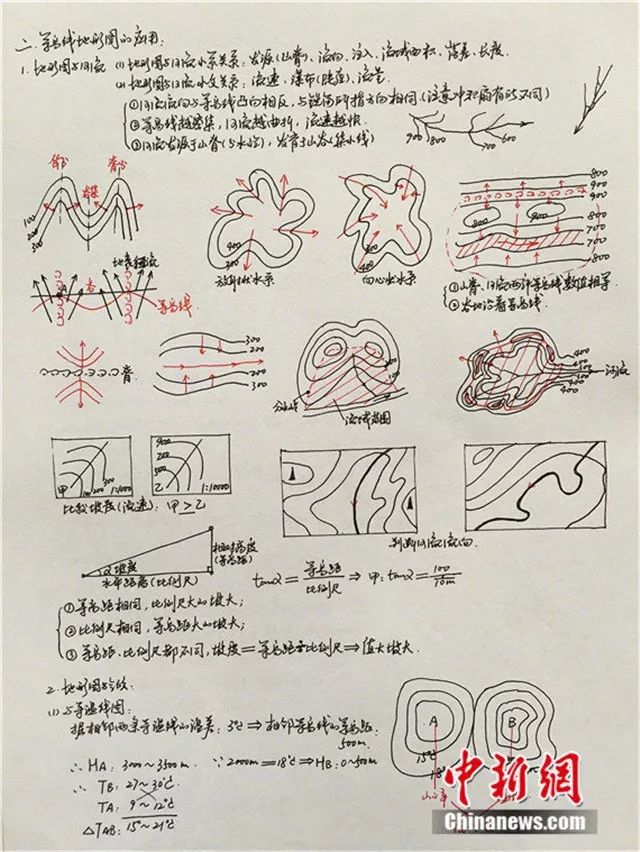 二、等高线地形图的应用:
1. 地形图与河流 (1)地形图与河流水系关系: 发源(山脊)、流向、注入、流域面积、落差、长度.
(2)地形图与河流水文关系: 流速、瀑布(陡崖)、流量
①河流流向与等高线凸向相反,与锐角所指方向相同(注意冲积扇有所不同)
②等高线越密集,河流越曲折,流速越快
③河流发源于山脊(分水岭),发育于山谷(集水线)
900 800 700 600
谷 脊
100
200
300
400
300
放射状水系
400
300
向心状水系
800
900
900
800
700
700
800
地表径流
谷
等高线
①山脊、河流两部等高线数值相等
②谷地沿着等高线.
脊
300
200
200
300
分水岭
流域范围
400
300
300
400
河流
甲 100 200 300 1:1000
乙 1:10000
比较坡度(流速): 甲>乙
判断河流流向.
相对高度
(等高距)
α 坡度
水平距离(比例尺)
tanα = 等高距/比例尺 ⇒ 甲: tanα = 100/10m
①等高距相同,比例尺大的坡大;
②比例尺相同,等高距大的坡大;
③等高距、比例尺都不同,坡度=等高距乘比例尺⇒值大坡大.
2. 地形图与气候:
(1)与等温线图:
据相邻两条等温线的温差: 3℃ ⇒ 相邻等高线的等高距: 500m.
∴ HA: 3000~3500m. ∵2000m=18℃⇒HB: 0~500m
∴ TB: 27~30℃
TA: 9~12℃
△TAB: 15~21℃
A
B
15℃
18℃
中新網
Chinanews.com